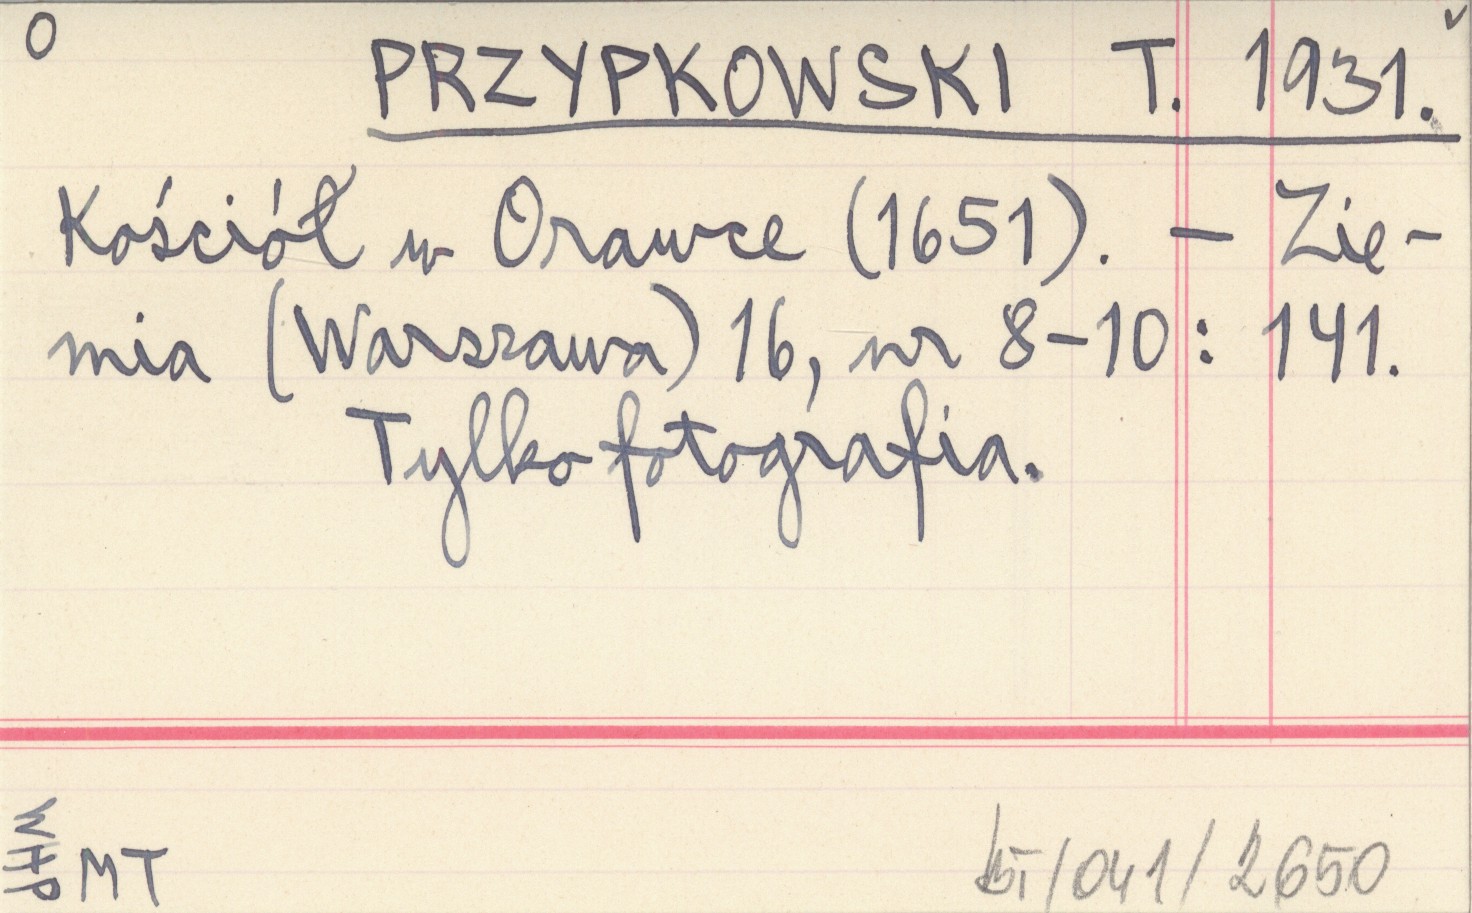 O
PRZYPKOWSKI T. 1931.
Kościół w Orawce (1651). – Zie-
mia (Warszawa) 16, nr 8–10: 141.
Tylko fotografia.
WHP
MT
/041/2650